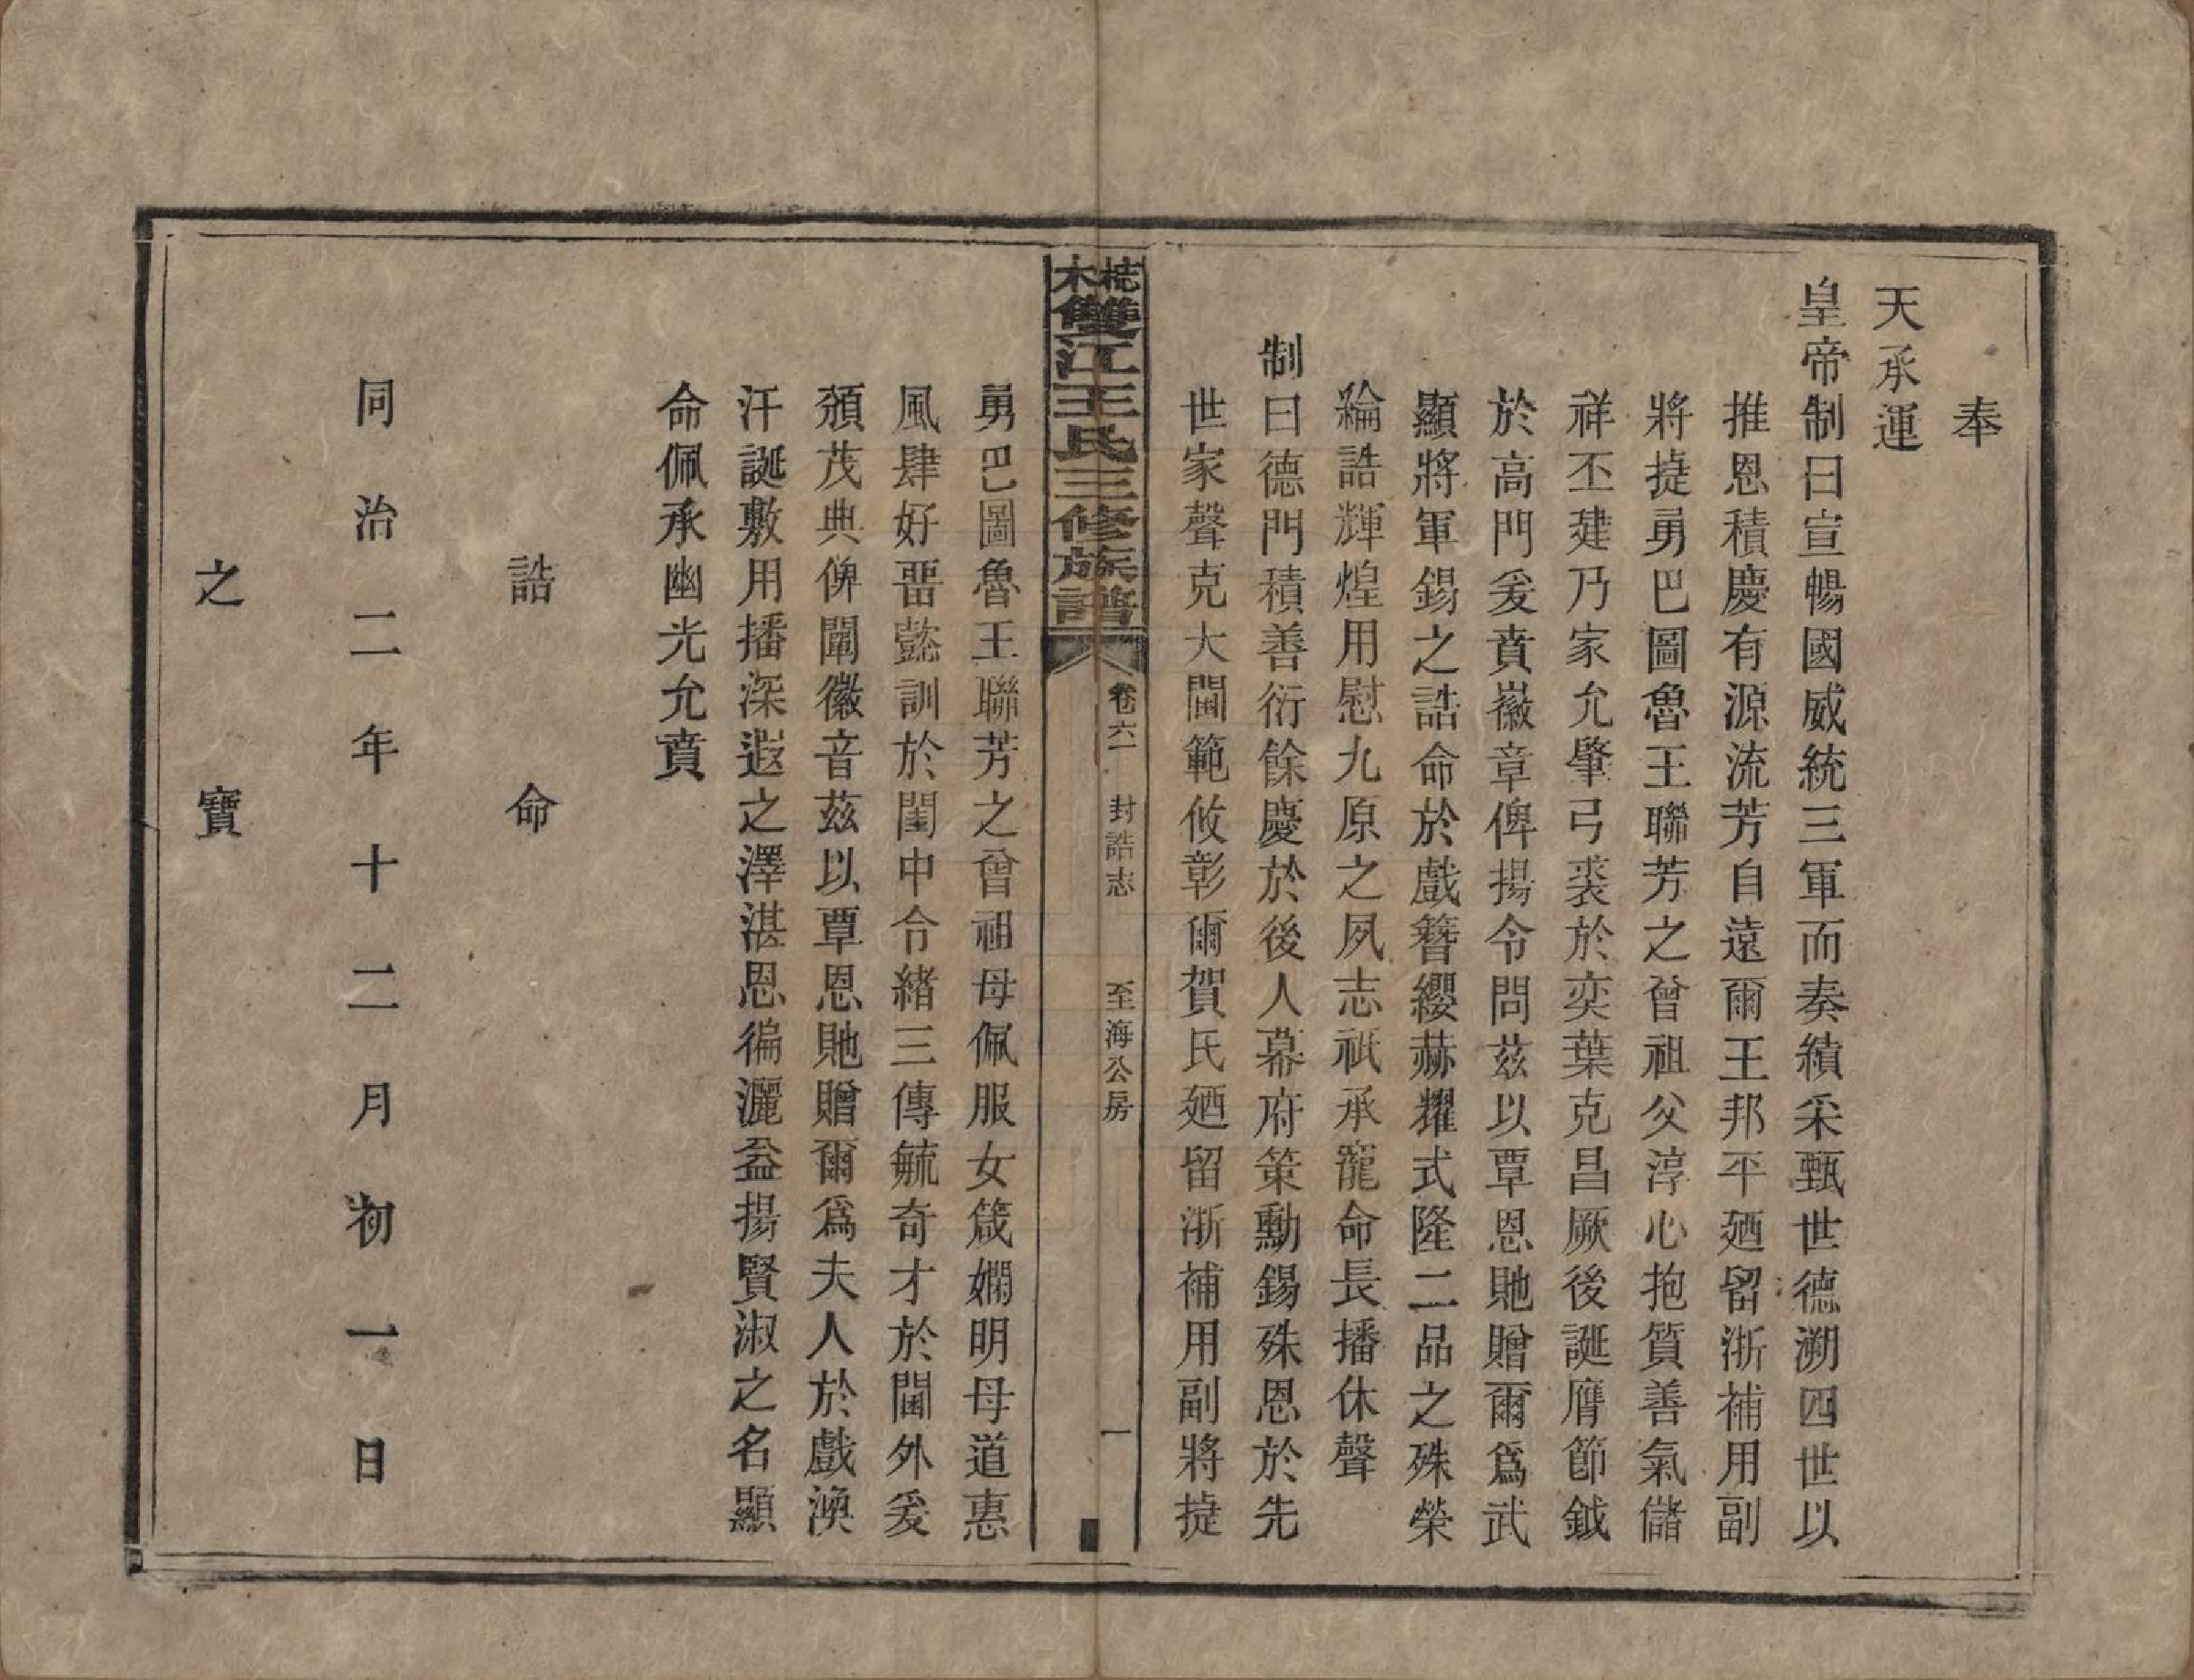 奉
天承運
皇帝制曰宣暢國威統三軍而奏績采甄世德溯四世以
推恩積慶有源流芳自遠爾王邦平廼留浙補用副
將㨗勇巴圖魯王聯芳之曾祖父淳心抱質善氣儲
祥丕建乃家允肇弓裘於奕葉克昌厥後誕膺節鉞
於高門爰賁徽章俾揚令問茲以覃恩貤贈爾爲武
顯將軍錫之誥命於戲簪纓赫耀式隆二品之殊榮
綸誥輝煌用慰九原之夙志祇承寵命長播休聲
制曰德門積善衍餘慶於後人幕府策勳錫殊恩於先
世家聲克大閫範攸彰爾賀氏廼留浙補用副將㨗
木梽雙江王氏三修族譜
卷六一
封誥志
至海公房
一
勇巴圖魯王聯芳之曾祖母佩服女箴嫻明母道惠
風肆好畱懿訓於閨中令緒三傳毓奇才於閫外爰
頒茂典俾闡徽音茲以覃恩貤贈爾爲夫人於戲渙
汗誕敷用播深遐之澤湛恩徧灑益揚賢淑之名顯
命佩承幽光允賁
誥命
同治二年十二月初一日
之寶